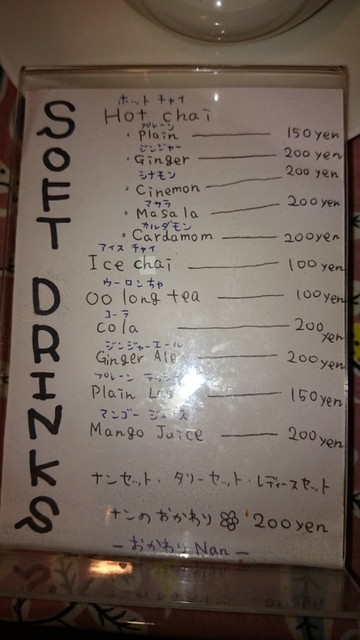 SOFT DRINKS
ホット チャイ
Hot chai
プレーン
・Plain 150 yen
ジンジャー
・Ginger 200 yen
シナモン
・Cinemon 200 yen
マサラ
・Masala 200 yen
カルダモン
・Cardamom 200 yen
アイス チャイ
Ice chai 100 yen
ウーロンちゃ
Oo long tea 100 yen
コーラ
Cola 200 yen
ジンジャーエール
Ginger Ale 200 yen
プレーン
Plain 150 yen
マンゴー ジュース
Mango Juice 200 yen
ナンセット・タリーセット・レディースセット
ナンのおかわり 200 yen
ー おかわり Nan ー